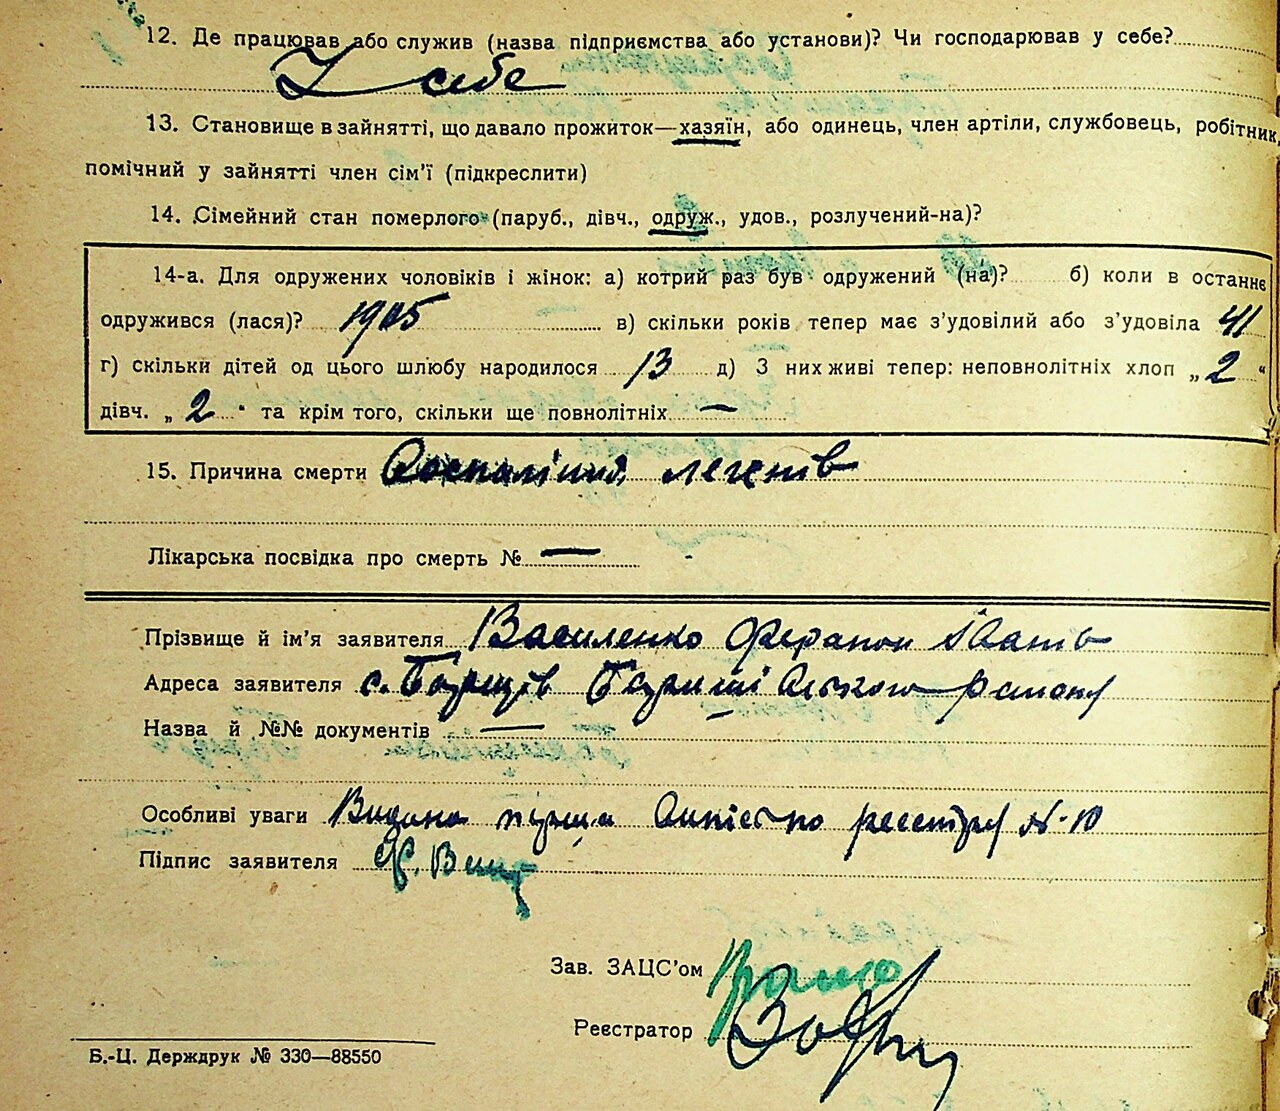 12. Де працював або служив (назва підприємства або установи)? Чи господарював у себе?
У себе
13. Становище в зайнятті, що давало прожиток—хазяїн, або одинець, член артіли, службовець, робітник,
помічний у зайнятті член сім'ї (підкреслити)
14. Сімейний стан померлого (паруб., дівч., одруж., удов., розлучений-на)?
14-а. Для одружених чоловіків і жінок: а) котрий раз був одружений (на)? б) коли в останнє
одружився (лася)? 1905 в) скільки років тепер має з'удовілий або з'удовіла 41
г) скільки дітей од цього шлюбу народилося 13 д) З них живі тепер: неповнолітніх хлоп „ 2 "
дівч. „ 2 " та крім того, скільки ще повнолітніх —
15. Причина смерти легенів
Лікарська посвідка про смерть № —
Прізвище й ім'я заявителя Василенко Ферапон
Адреса заявителя с. району
Назва й №№ документів —
Особливі уваги Видана реєстру № 10
Підпис заявителя Ф.
Зав. ЗАЦС'ом
Реєстратор
Б.-Ц. Держдрук № 330—88550